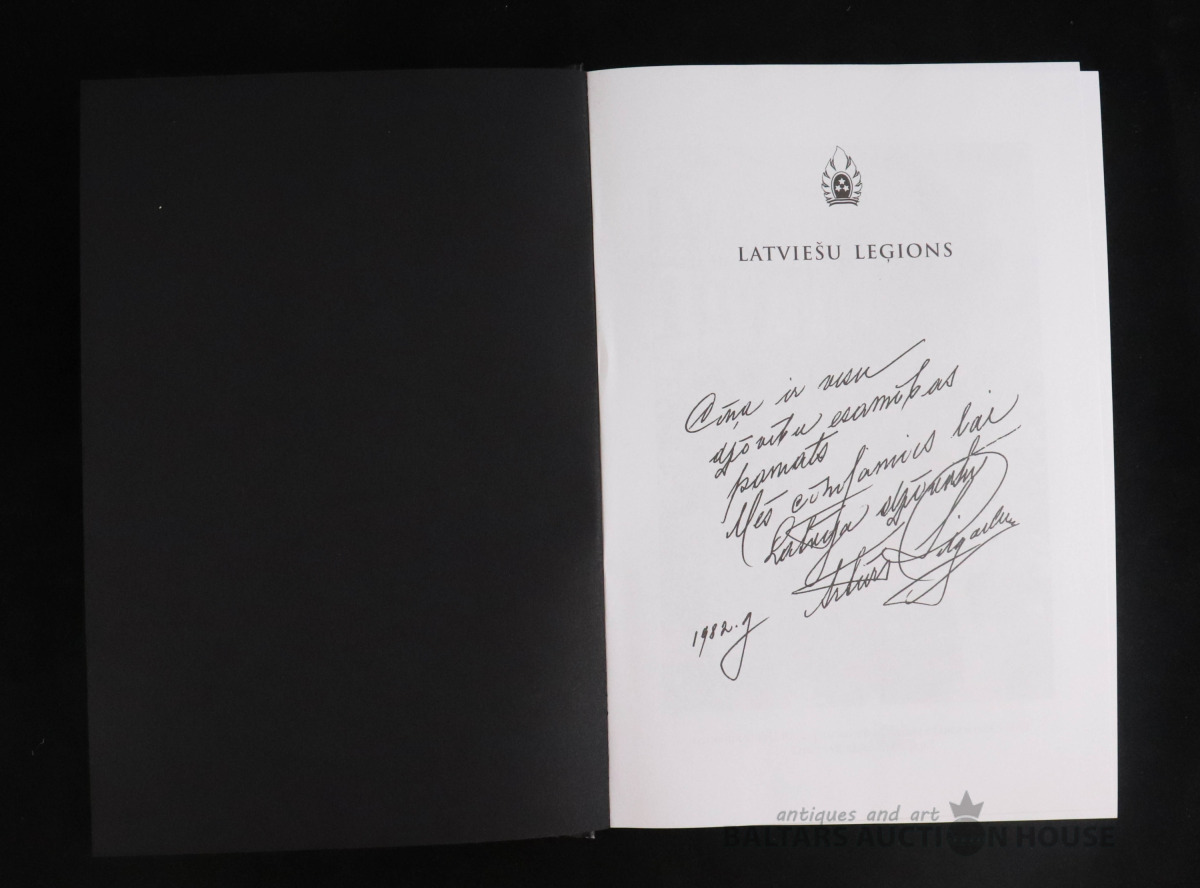 LATVIEŠU LEĢIONS
Cīņa ir visu
dzīvību esamības
pamats
Mēs cīnījamies lai
Latvija dzīvotu
Arturs
1982.g
antiques and art
BALTARS AUCTION HOUSE